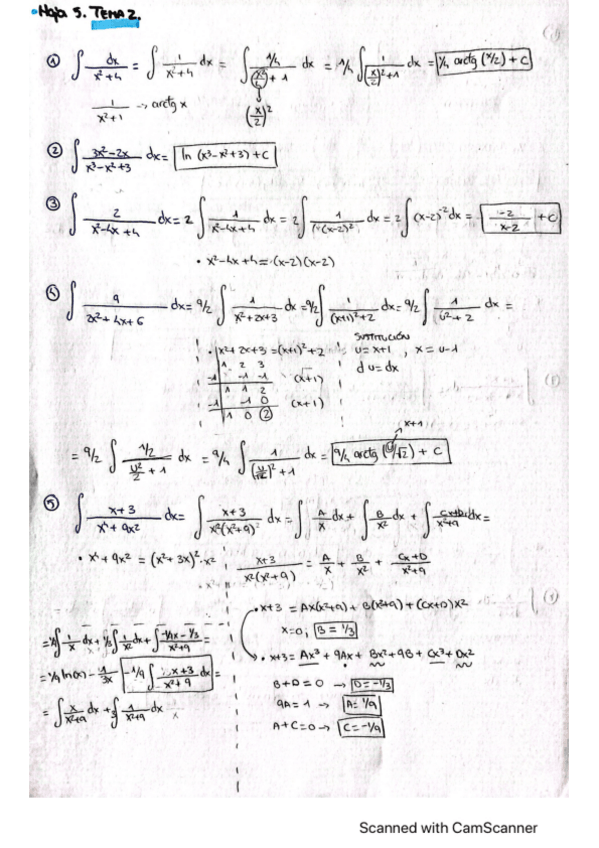 Hoja 5. TEMA 2.
① ∫ dx/(x²+4) = ∫ 1/(x²+4) dx = ∫ (1/4)/((x²/4) + 1) dx = 1/4 ∫ 1/((x/2)²+1) dx = 1/4 arctg (x/2) + C
1/(x²+1) → arctg x
(x/2)²
② ∫ (3x²-2x)/(x³-x²+3) dx = ln (x³-x²+3) + C
③ ∫ 2/(x²-4x+4) dx = 2 ∫ 1/(x²-4x+4) dx = 2 ∫ 1/(x-2)² dx = 2 ∫ (x-2)⁻² dx = -2/(x-2) + C
• x²-4x+4 = (x-2)(x-2)
④ ∫ 9/(2x²+4x+6) dx = 9/2 ∫ 1/(x²+2x+3) dx = 9/2 ∫ 1/((x+1)²+2) dx = 9/2 ∫ 1/(u²+2) dx =
SUSTITUCIÓN
• x²+2x+3 = (x+1)²+2
u = x+1 , x = u-1
1 2 3
du = dx
-1 -1 -1 (x+1)
1 1 2
-1 -1 0 (x+1)
1 0 ②
x+1
= 9/2 ∫ (1/2)/(u²/2 + 1) dx = 9/4 ∫ 1/((u/√2)² + 1) dx = 9/4 arctg (u/√2) + C
⑤ ∫ (x+3)/(x⁴+9x²) dx = ∫ (x+3)/(x²(x²+9)) dx = ∫ A/x dx + ∫ B/x² dx + ∫ (Cx+D)/(x²+9) dx =
• x⁴+9x² = (x²+3x)²·x²
(x+3)/(x²(x²+9)) = A/x + B/x² + (Cx+D)/(x²+9)
• x+3 = Ax(x²+9) + B(x²+9) + (Cx+D)x²
x=0; B = 1/3
• x+3 = Ax³ + 9Ax + Bx² + 9B + Cx³ + Dx²
B+D = 0 → D = -1/3
9A = 1 → A = 1/9
A+C = 0 → C = -1/9
= 1/9 ∫ 1/x dx + 1/3 ∫ 1/x² dx + ∫ (-1/9x - 1/3)/(x²+9) =
= 1/9 ln(x) - 1/3x - 1/9 ∫ (x+3)/(x²+9) dx =
= ∫ x/(x²+9) dx + 3 ∫ 1/(x²+9) dx
Scanned with CamScanner